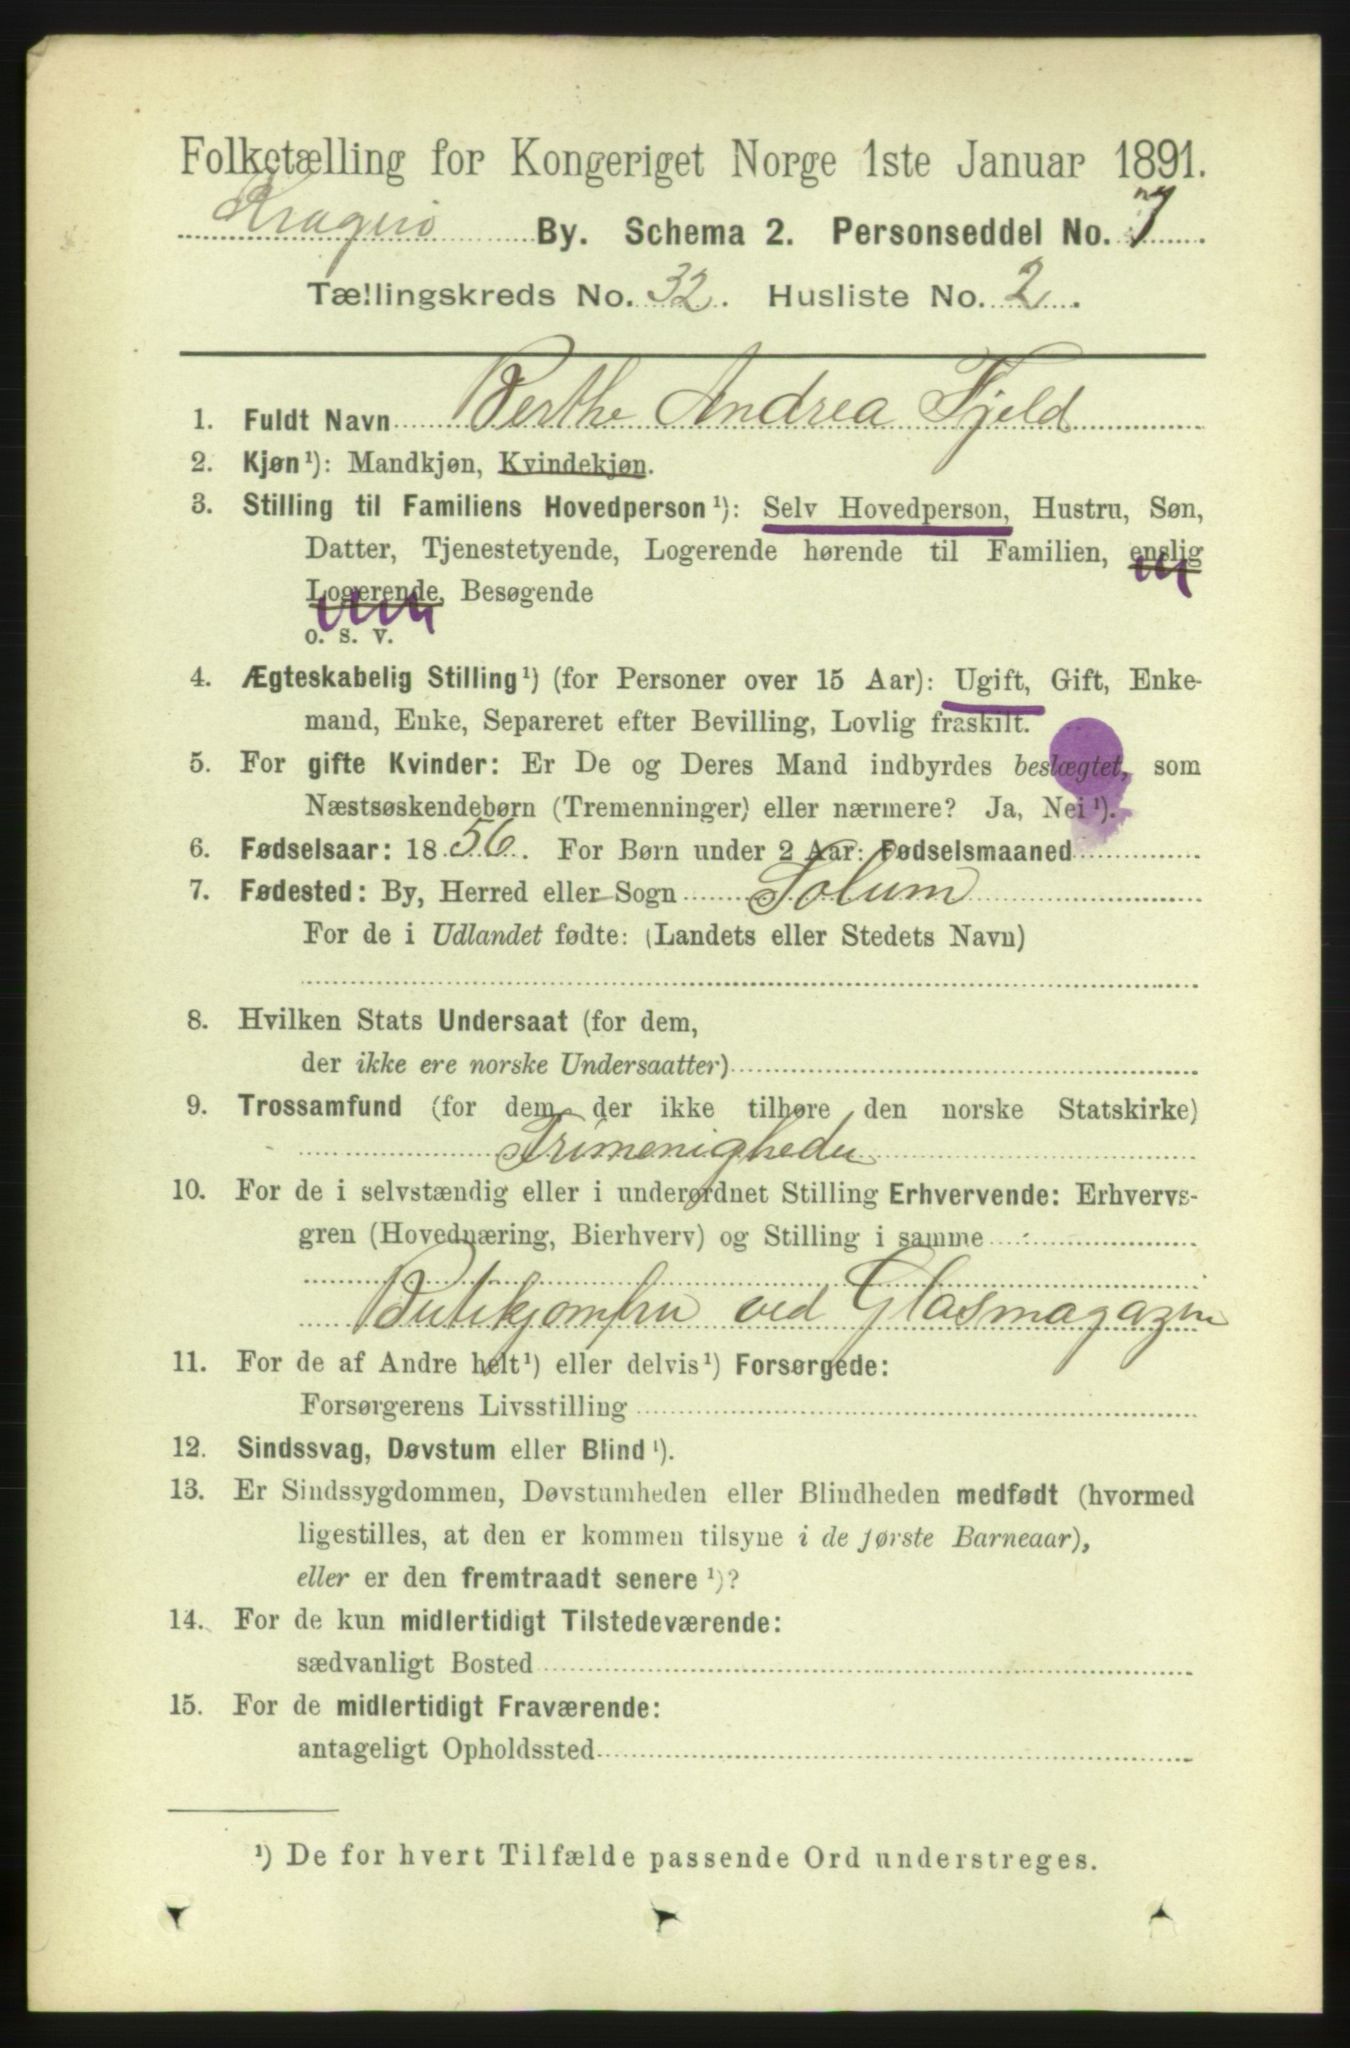 Folketælling for Kongeriget Norge 1ste Januar 1891.
Kragerø By. Schema 2. Personseddel No. 7
Tællingskreds No. 32. Husliste No. 2.
1. Fuldt Navn Berthe Andrea Fjeld
2. Kjøn ¹): Mandkjøn, Kvindekjøn.
3. Stilling til Familiens Hovedperson ¹): Selv Hovedperson, Hustru, Søn,
Datter, Tjenestetyende, Logerende hørende til Familien, enslig
Logerende, Besøgende
o. s. v.
4. Ægteskabelig Stilling ¹) (for Personer over 15 Aar): Ugift, Gift, Enke-
mand, Enke, Separeret efter Bevilling, Lovlig fraskilt.
5. For gifte Kvinder: Er De og Deres Mand indbyrdes beslægtet, som
Næstsøskendebørn (Tremenninger) eller nærmere? Ja, Nei ¹).
6. Fødselsaar: 1856. For Børn under 2 Aar: Fødselsmaaned
7. Fødested: By, Herred eller Sogn Solum
For de i Udlandet fødte: (Landets eller Stedets Navn)
8. Hvilken Stats Undersaat (for dem,
der ikke ere norske Undersaatter)
9. Trossamfund (for dem, der ikke tilhøre den norske Statskirke)
Frimenigheden
10. For de i selvstændig eller i underordnet Stilling Erhvervende: Erhvervs-
gren (Hovednæring, Bierhverv) og Stilling i samme
Butikjomfru ved Glasmagazin
11. For de af Andre helt ¹) eller delvis ¹) Forsørgede:
Forsørgerens Livsstilling
12. Sindssvag, Døvstum eller Blind ¹).
13. Er Sindssygdommen, Døvstumheden eller Blindheden medfødt (hvormed
ligestilles, at den er kommen tilsyne i de første Barneaar),
eller er den fremtraadt senere ¹)?
14. For de kun midlertidigt Tilstedeværende:
sædvanligt Bosted
15. For de midlertidigt Fraværende:
antageligt Opholdssted
¹) De for hvert Tilfælde passende Ord understreges.